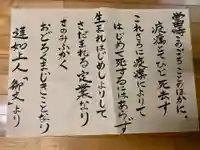 當時このごろことのほかに、
疫癘とてひと死す
これさらに疫癘によりて
はじめて死するにはあらず
生まれはじめしよりして
さだまれる定業なり
さのみふかく
おどろくまじきことなり
蓮如上人 御文より